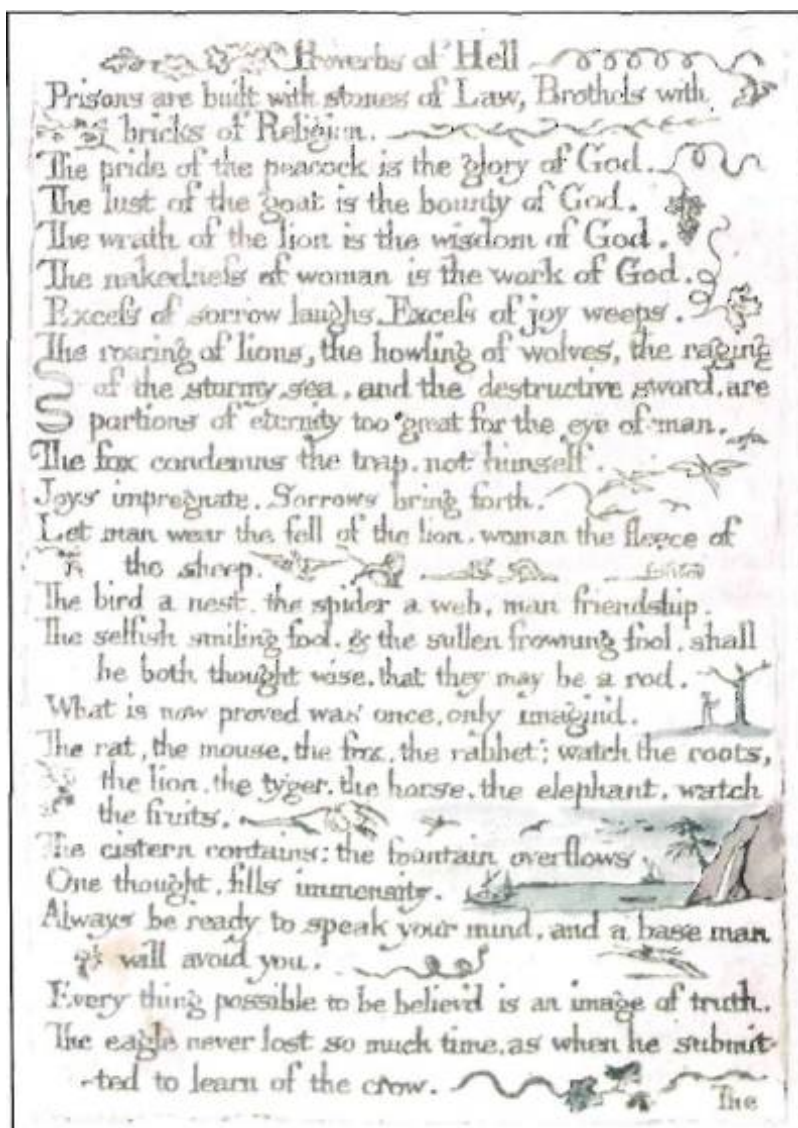 Proverbs of Hell
Prisons are built with stones of Law, Brothels with
bricks of Religion.
The pride of the peacock is the glory of God.
The lust of the goat is the bounty of God.
The wrath of the lion is the wisdom of God.
The nakedneſs of woman is the work of God.
Exceſs of sorrow laughs. Exceſs of joy weeps.
The roaring of lions, the howling of wolves, the raging
of the stormy sea, and the destructive sword, are
portions of eternity too great for the eye of man.
The fox condemns the trap, not himself.
Joys impregnate. Sorrows bring forth.
Let man wear the fell of the lion, woman the fleece of
the sheep.
The bird a nest, the spider a web, man friendship.
The selfish smiling fool, & the sullen frowning fool, shall
be both thought wise, that they may be a rod.
What is now proved was once, only imagin'd.
The rat, the mouse, the fox, the rabbet; watch the roots,
the lion, the tyger, the horse, the elephant, watch
the fruits.
The cistern contains; the fountain overflows
One thought, fills immensity.
Always be ready to speak your mind, and a base man
will avoid you.
Every thing possible to be believ'd is an image of truth.
The eagle never lost so much time, as when he submit-
-ted to learn of the crow.
The